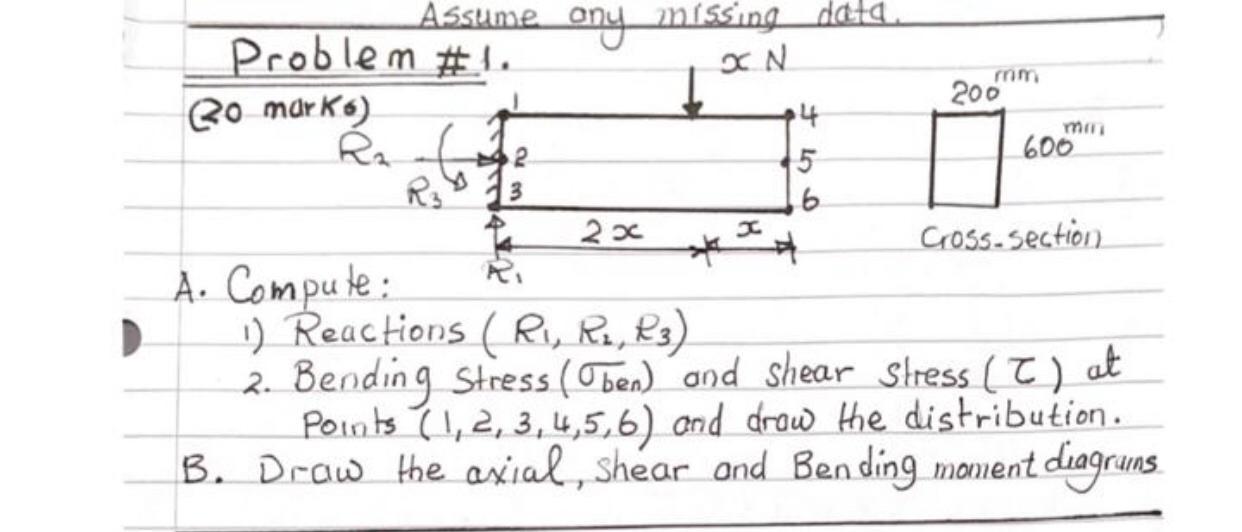 Assume any missing data.
Problem #1.
x N
(20 marks)
200 mm
1
4
R2
2
5
600 mm
R3
3
6
2x
x
Cross-section
R1
A. Compute:
1) Reactions (R1, R2, R3)
2. Bending Stress (σben) and shear stress (τ) at
Points (1,2,3,4,5,6) and draw the distribution.
B. Draw the axial, shear and Bending moment diagrams